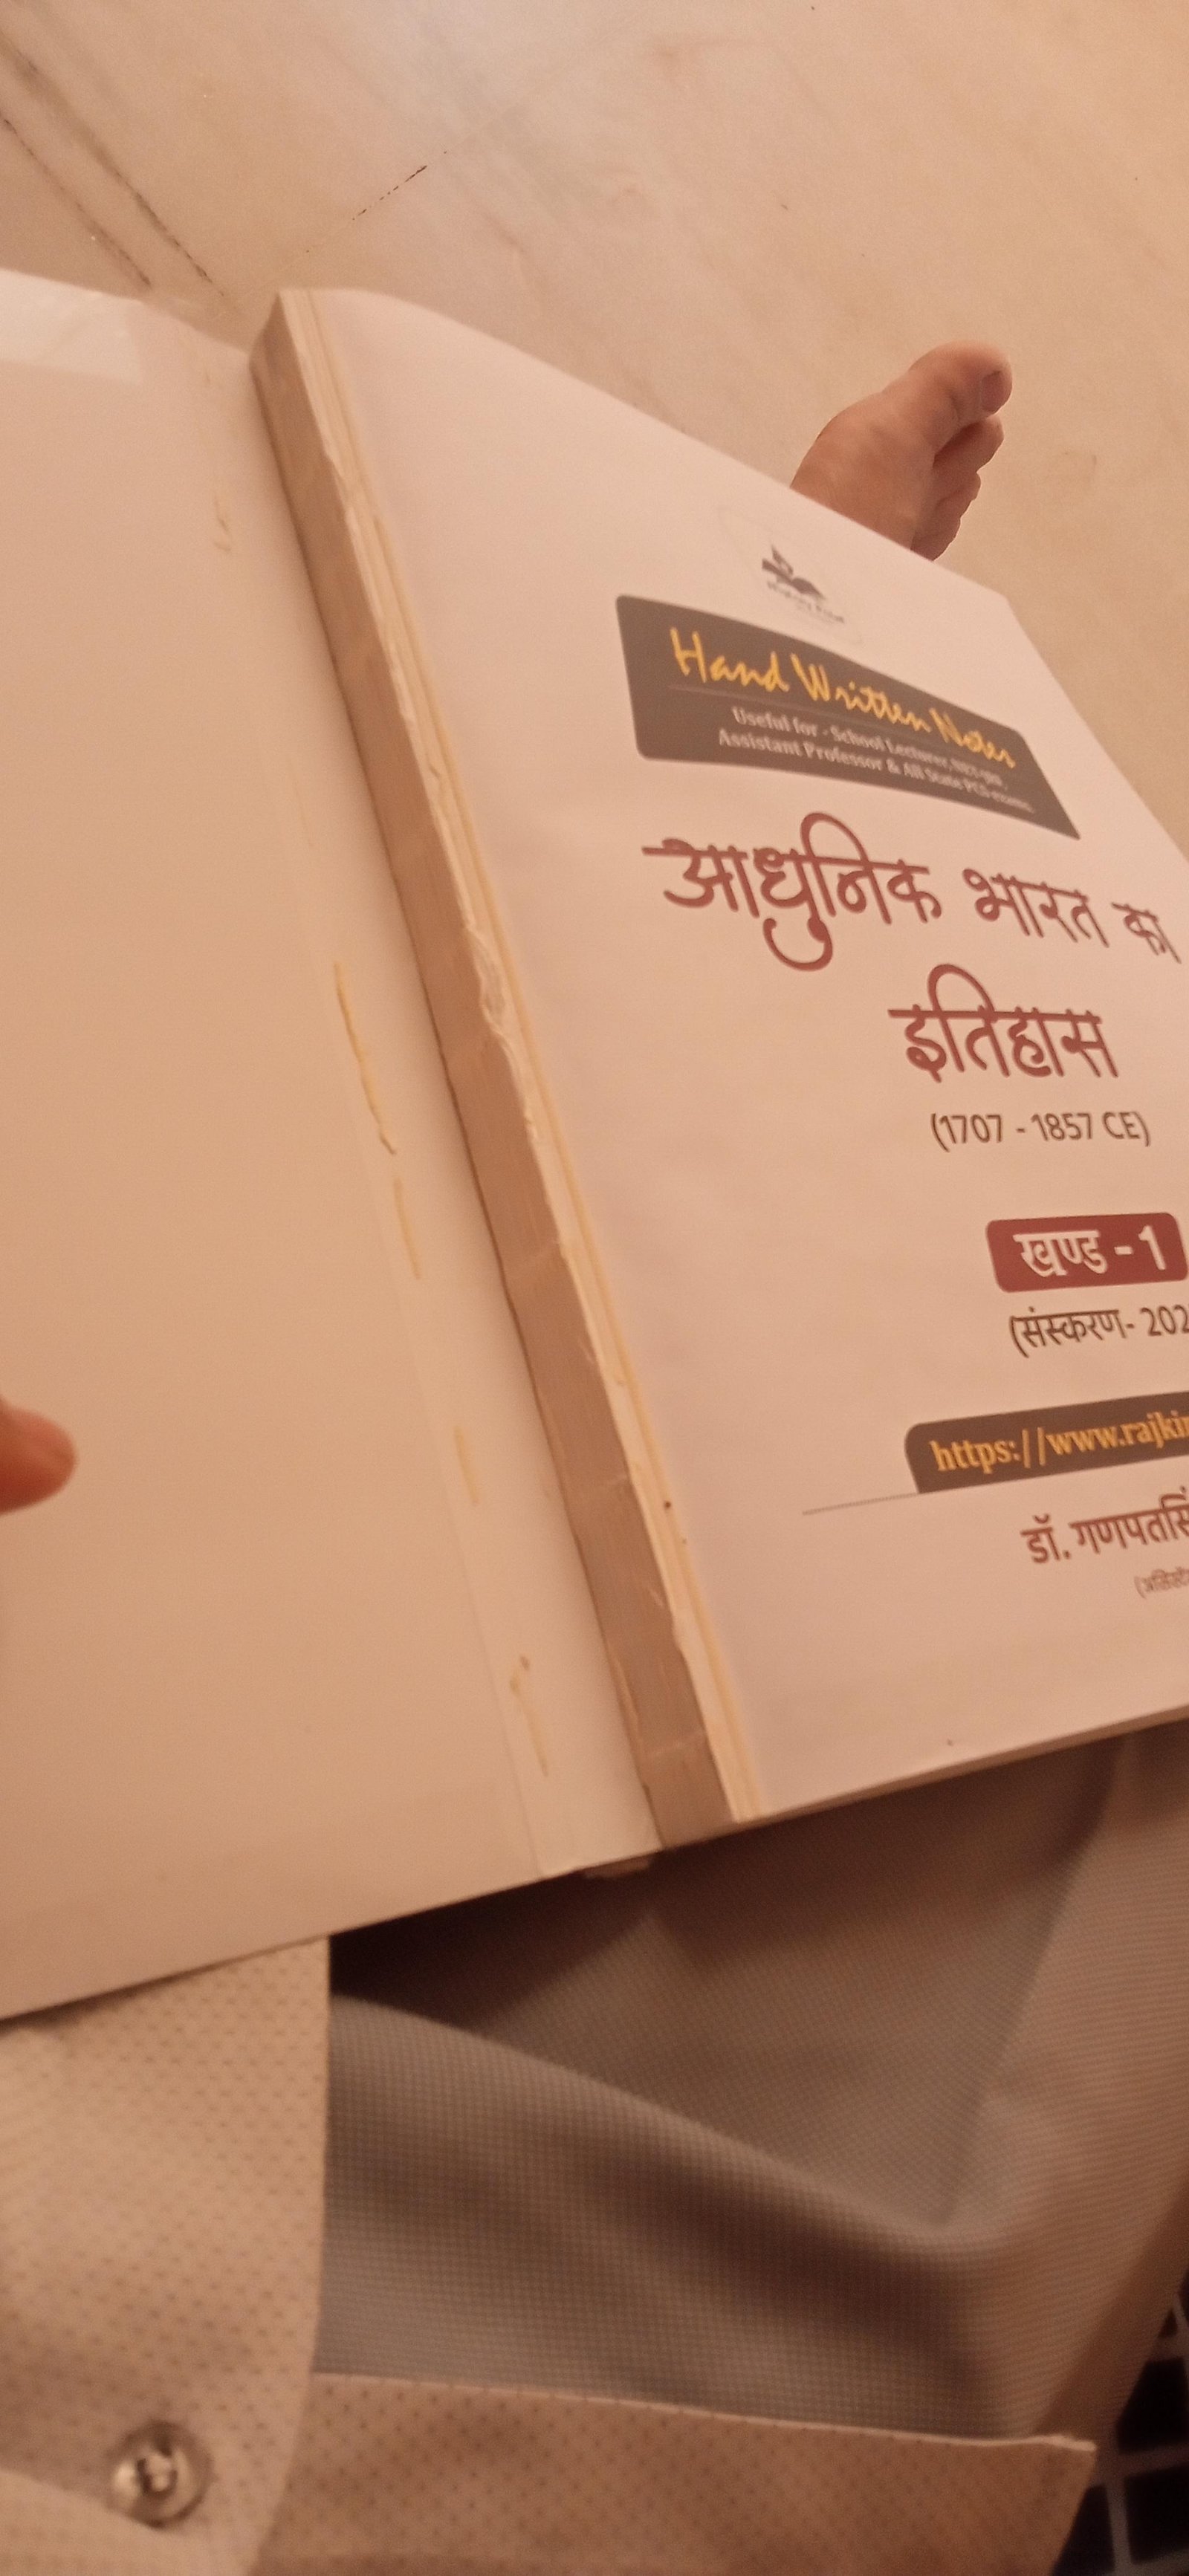 Hand Written Notes
Useful for - School Lecturer,
Assistant Professor & All State PCS exams
आधुनिक भारत का
इतिहास
(1707 - 1857 CE)
खण्ड - 1
(संस्करण- 202
https://www.rajki
डॉ. गणपतसिं